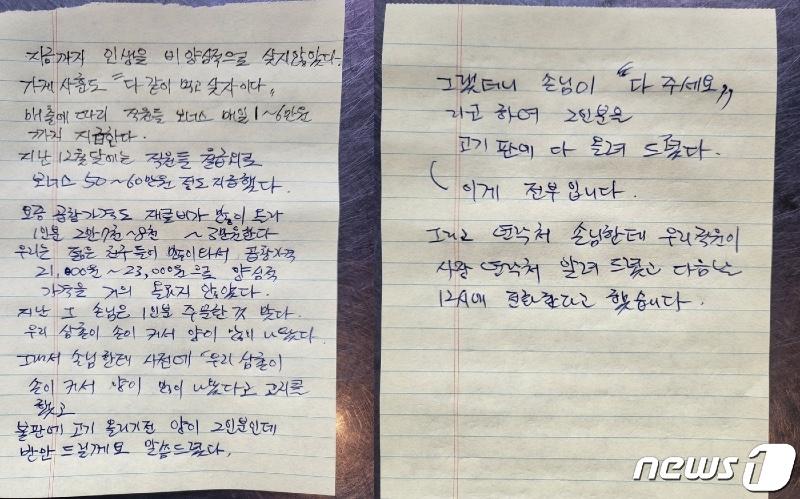 지금까지 인생을 비양심적으로 살지않았다.
가게 사훈도 "다 같이 먹고 살자이다"
매출에 따라 직원들 보너스 매일 1~6만원
까지 지급한다.
지난 12월달에는 직원들 월급외로
보너스 50~60만원 정도 지급했다.
요즘 곱창가격도 재료비가 많이 올라
1인분 2만7천~8천 ~3만원한다
우리는 젊은 친구들이 많이타서 곱창가격
21,000원~23,000원으로 양심적
가격을 거의 올리지 않았다.
지난 그 손님은 1인분 주문한것 맞다.
우리 삼촌이 손이 커서 양이 많이 나왔다.
그래서 손님한테 사전에 "우리 삼촌이
손이 커서 양이 많이 나왔다고 고지를
했고
불판에 고기 올리기전 양이 2인분인데
반만 드릴께요 말씀드렸다.
그랬더니 손님이 "다 주세요"
라고 하여 2인분을
고기 판에 다 올려 드렸다.
이게 전부입니다.
그리고 연락처 손님한테 우리직원이
사장 연락처 알려 드렸고 다음날
12시에 전화한다고 했습니다.
news1